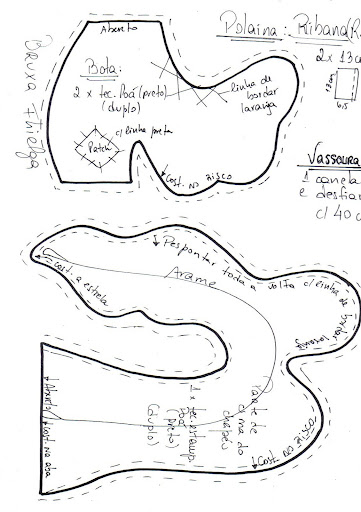 Aberto
Bota:
2 x tec. Poá (preto)
(duplo)
linha de
bordar
laranja
c/ linha preta
Patch
Cost. no risco
Polaina: Ribana
2 x 13 cm
13 cm
6,5
Vassoura
1 canela
e desfiar
c/ 40 c
Pespontar toda a volta c/ linha de bordar
Arame
Cost. a estrela
Parte de
cima do
chapéu
1 x tec. estampa
Poá
(preto)
(duplo)
Aberto / Cost. na aba
Cost. no risco